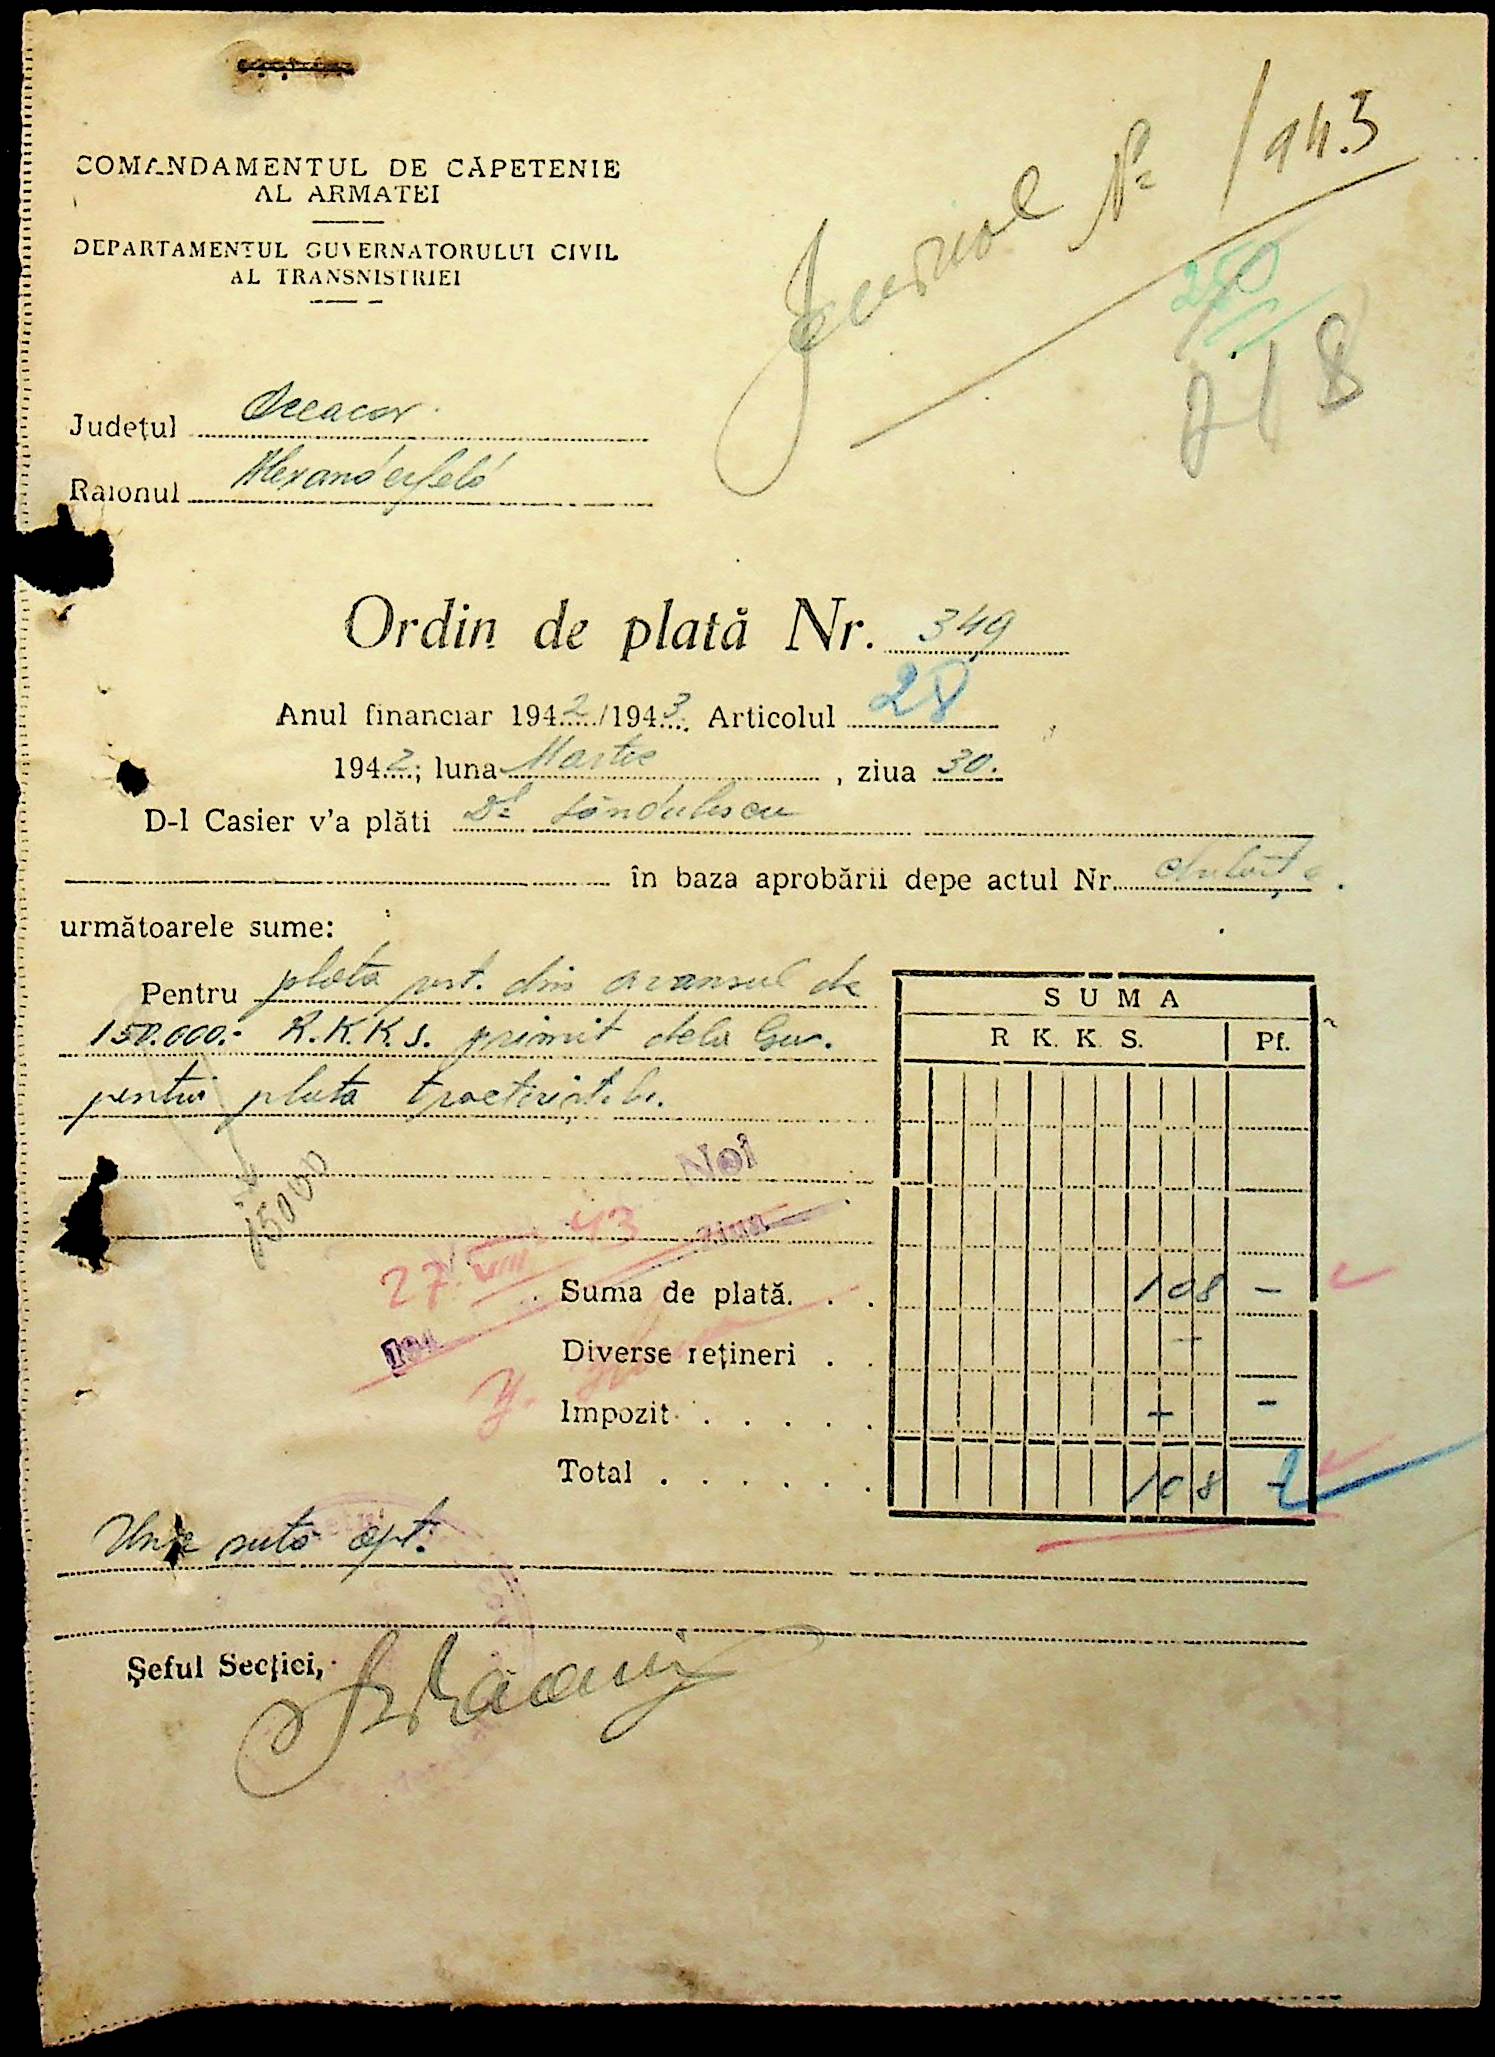 COMANDAMENTUL DE CĂPETENIE
AL ARMATEI
DEPARTAMENTUL GUVERNATORULUI CIVIL
AL TRANSNISTRIEI
Jurnal No /943
250
218
Județul Oceacov
Raionul Alexanderfeld
Ordin de plată Nr. 349
Anul financiar 1942/1943. Articolul 28
1942; luna Martie, ziua 30.
D-l Casier v'a plăti Dl Săndulescu
în baza aprobării depe actul Nr.
următoarele sume:
Pentru plata din avansul de
150.000.- R.K.K.S. primit dela Guv.
pentru plata tractoriștilor.
SUMA
R K. K S. Pf.
Noi
15000
27 VIII 43
ziua
194
Suma de plată. . . 108 —
Diverse rețineri . . —
Impozit . . . . . — —
Total . . . . . . 108 -
Una suta opt.
Șeful Secției,